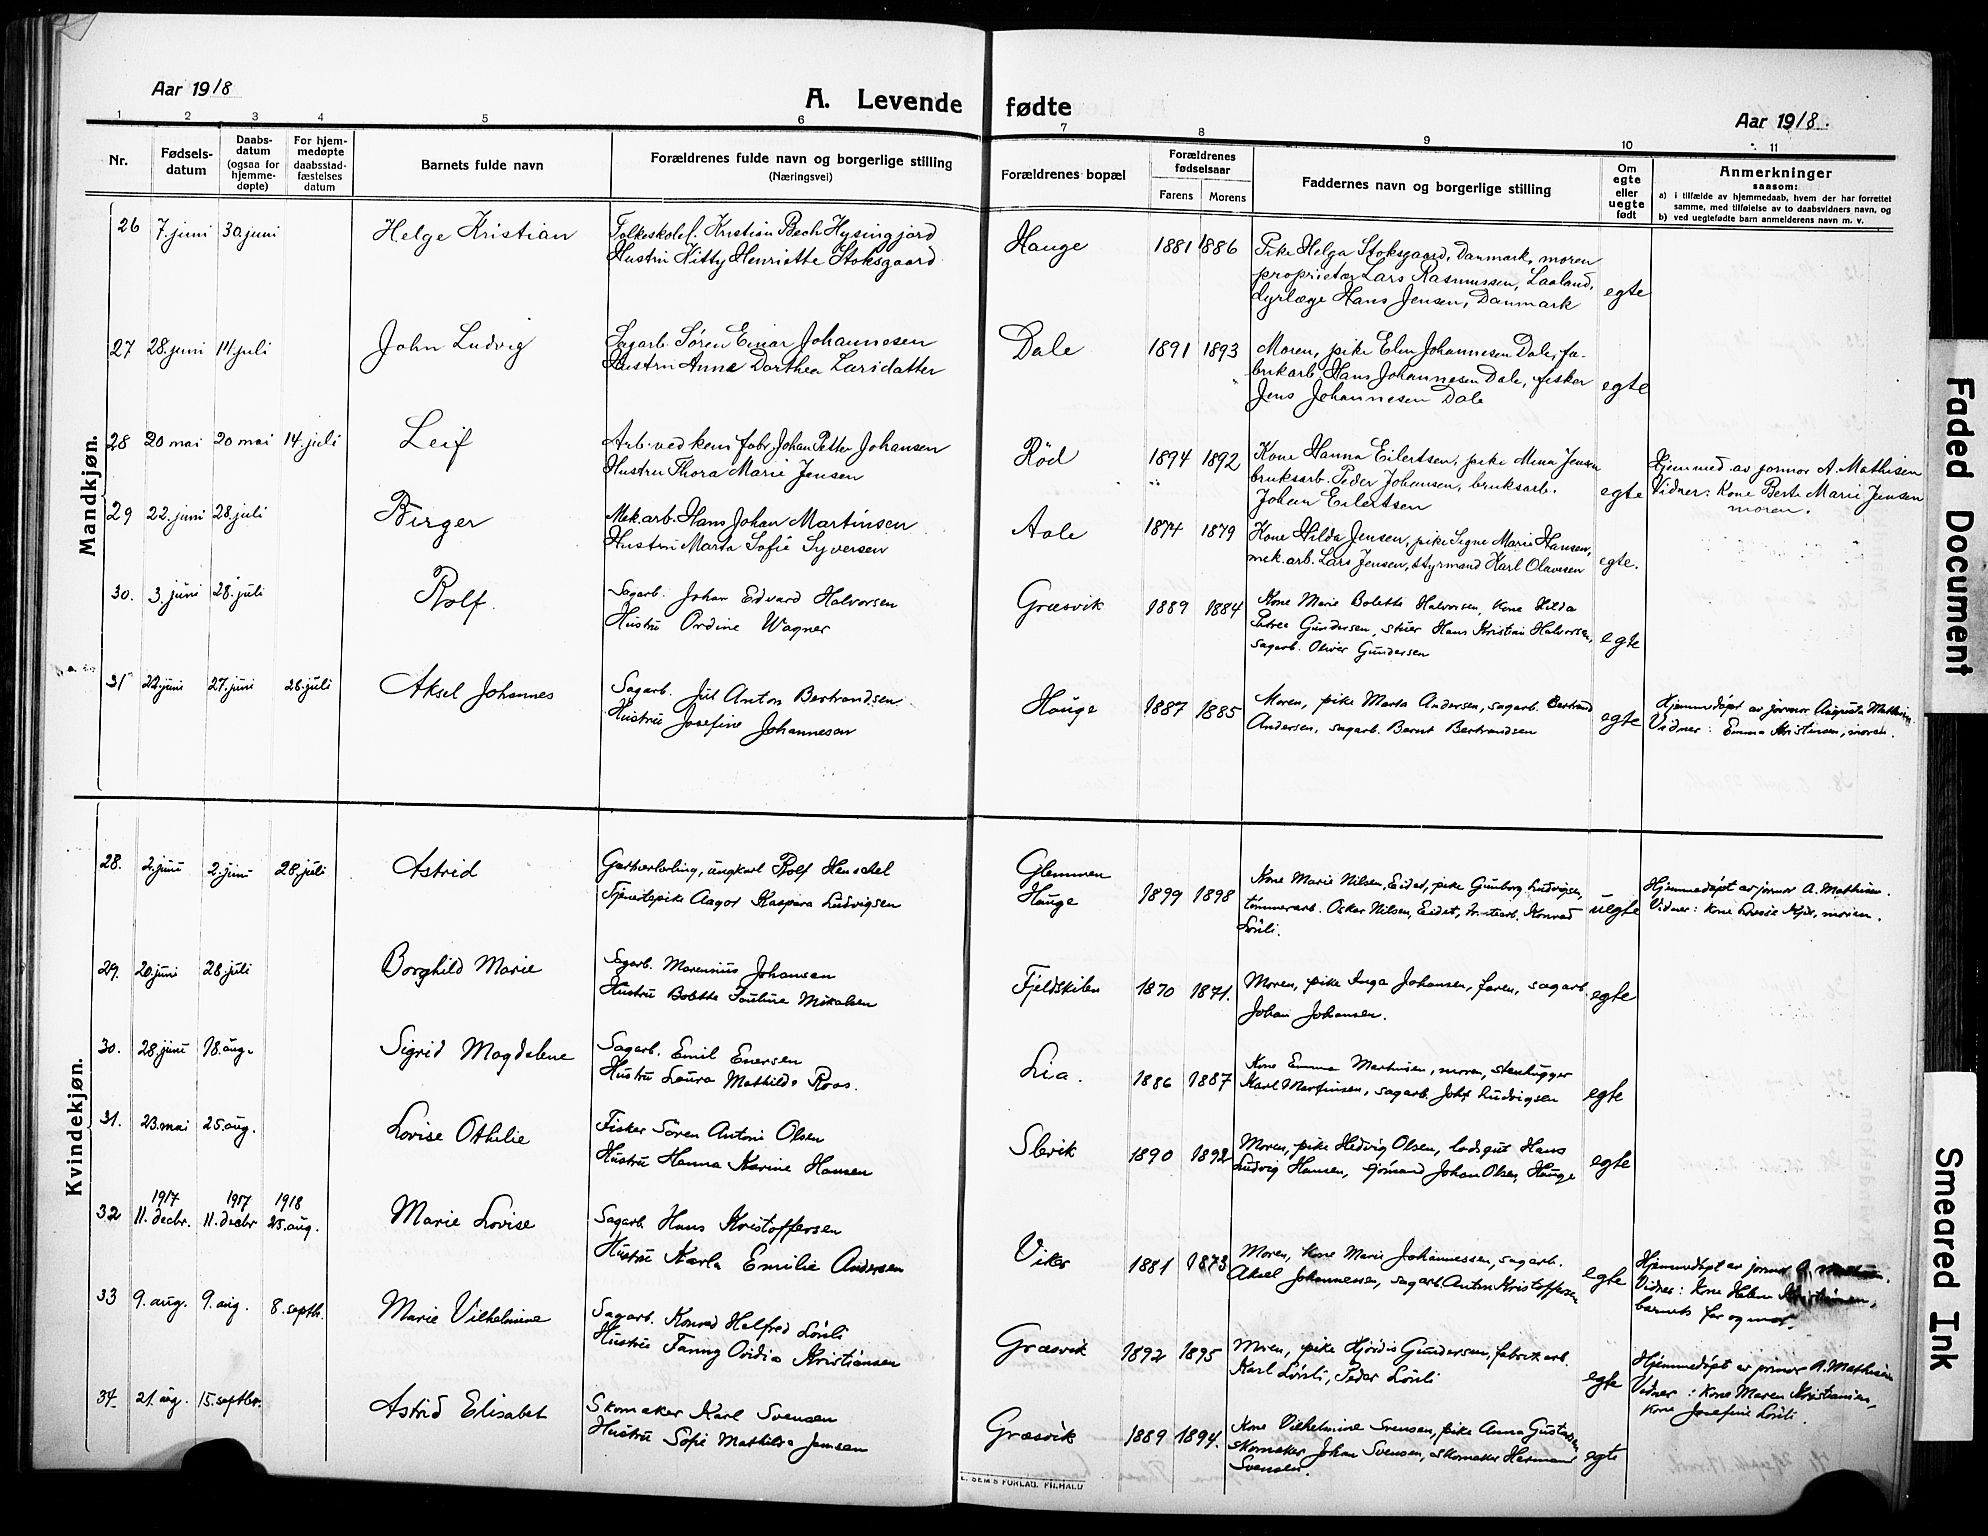 Aar 1918
A. Levende fødte
Aar 1918.
1 2 3 4 5 6 7 8 9 10 11
Nr.
Fødsels-
datum
Daabs-
datum
(ogsaa for
hjemme-
døpte)
For hjem-
medøpte
daabsstad-
fæstelses
datum
Barnets fulde navn
Forældrenes fulde navn og borgerlige stilling
(Næringsvei)
Forældrenes bopæl
Forældrenes
fødselsaar
Farens Morens
Faddernes navn og borgerlige stilling
Om
egte
eller
uegte
født
Anmerkninger
saasom:
a) i tilfælde av hjemmedaab, hvem der har forrettet
samme, med tilføielse av to daabsvidners navn, og
b) ved uegtefødte barn anmelderens navn m. v.
Mandkjøn.
26 7. juni 30. juni Helge Kristian
Folkeskolel. Kristian Bech Hysingjord
Hustru Kitty Henriette Stoksgaard
Hauge 1881 1886
Pike Helga Stoksgaard, Danmark, moren
proprietær Lars Rasmussen, Laaland,
dyrlæge Hans Jensen, Danmark
egte
27 28. juni 14. juli John Ludvig
Sagarb. Søren Einar Johannesen
Hustru Anna Dorthea Larsdatter
Dale 1891 1893
Moren, pike Elen Johannesen Dale, fa-
brikarb. Hans Johannesen Dale, fisker
Jens Johannesen Dale
egte
28 20 mai 20 mai 14. juli Leif
Arb. ved kem. fabr. Johan Petter Johansen
Hustru Thora Marie Jensen
Röd 1894 1892
Kone Hanna Eilertsen, pike Mina Jensen
bruksarb. Peder Johansen, bruksarb.
Johan Eilertsen
egte
Hjemmed. av jormor A. Mathisen
Vidner: Kone Berte Marie Jensen
moren.
29 22. juni 28. juli Birger
Mek.arb. Hans Johan Martinsen
Hustru Marta Sofie Syversen
Aale 1874 1879
Kone Hilda Jensen, pike Signe Marie Hansen,
mek.arb. Lars Jensen, styrmand Karl Olavesen
egte.
30. 3. juni 28. juli Rolf.
Sagarb. Johan Edvard Halvorsen
Hustru Ordine Wagner
Græsvik 1889 1884
Kone Marie Bolette Halvorsen, kone Hilda
Petrea Gundersen, stuer Hans Kristian Halvorsen,
sagarb. Oliver Gundersen
egte
31 22. juni 27. juni 28. juli Aksel Johannes
Sagarb. Jul Anton Bertrandsen
Hustru Josefine Johannesen
Hauge 1887 1885
Moren, pike Marta Andersen, sagarb. Bertrand
Andersen, sagarb. Bernt Bertrandsen
egte
Hjemmedøpt av jormor Augusta Mathisen
Vidner: Emma Kristensen, moren.
Kvindekjøn.
28. 2. juni 2. juni 28. juli Astrid
Garverlærling, ungkarl Rolf Henschel
Tjenestepike Aagot Kaspara Ludvigsen
Glemmen
Hauge 1899 1898
Kone Marie Nilsen, Eidet, pike Gunborg Ludvigsen,
tømmerarb. Oskar Nilsen, Eidet, Konrad
Lörli.
uegte
Hjemmedøpt av jormor A. Mathisen.
Vidner: Kone Lovise moren.
29. 20. juni 28. juli Borghild Marie
Sagarb. Marensius Johansen
Hustru Bolette Pauline Mikalsen
Fjeldskilen 1870 1871.
Moren, pike Inga Johansen, faren, sagarb.
Johan Johansen.
egte
30. 28. juni 18. aug. Sigrid Magdalene
Sagarb. Emil Enersen
Hustru Laura Mathilde Roos.
Lia. 1886 1887
Kone Emma Martinsen, moren, stenhugger
Karl Martinsen, sagarb. John Ludvigsen
egte
31. 23. mai 25. aug. Lovise Othilie
Fisker Sören Antoni Olsen
Hustru Hanna Karine Hansen
Slevik 1890 1892
Moren, pike Hedvig Olsen, losgut Hans
Ludvig Hansen, sjömand Johan Olsen, Hauge
egte
1917 1917 1918
32 11. decbr. 11. decbr 25. aug. Marie Lovise
Sagarb. Hans Kristoffersen
Hustru Karla Emilie Andersen
Viker 1881 1873
Moren, Kone Marie Johannessen, sagarb.
Aksel Johannessen, sagarb. Anton Kristoffersen
egte
Hjemmedøpt av jormor A.
Vidner: Kone Helene
barnets far og mor.
33 9. aug. 9. aug. 8. septbr. Marie Vilhelmine
Sagarb. Konrad Helfred Lörli
Hustru Fanny Ovidia Kristiansen
Græsvik 1892 1895
Moren, pike Hjördis Gundersen, fabrikarb.
Karl Lörli, Peder Lörli
egte
Hjemmedøpt av jormor A. Mathisen
Vidner: Kone Maren Kristiansen,
Kone Josefine Lörli.
34. 21. aug. 15. septbr. Astrid Elisabet
Skomaker Karl Svensen
Hustru Sofie Mathilde Jensen
Græsvik 1889 1894.
Kone Vilhelmine Svensen, pike Anna Gustavsen
skomaker Johan Svensen, skomaker Herman
Svensen.
egte
E. SEM'S FORLAG, F.HALD
Faded Document
Smeared Ink